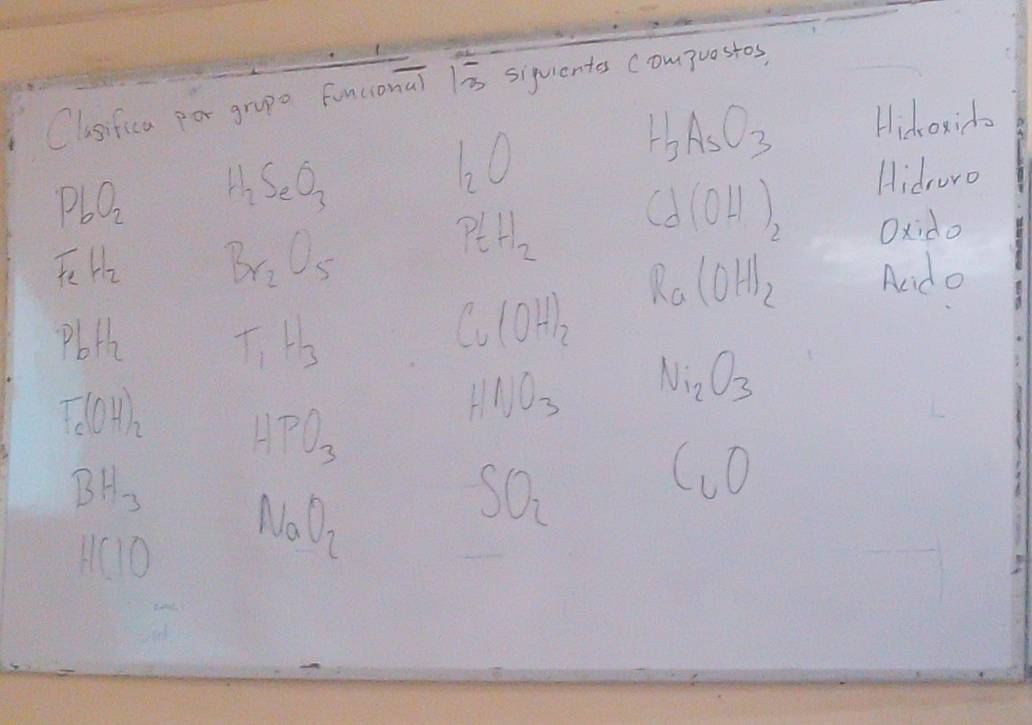 Clasifica por grupo funcional los siguientes compuestos.
PbO2
FeH2
PbH2
Fe(OH)2
BH3
HClO
H2SeO3
Br2O5
TiH3
HPO3
NaO2
I2O
PtH2
Cu(OH)2
HNO3
SO2
H3AsO3
Cd(OH)2
Ra(OH)2
Ni2O3
CuO
Hidroxido
Hidruro
Oxido
Acido